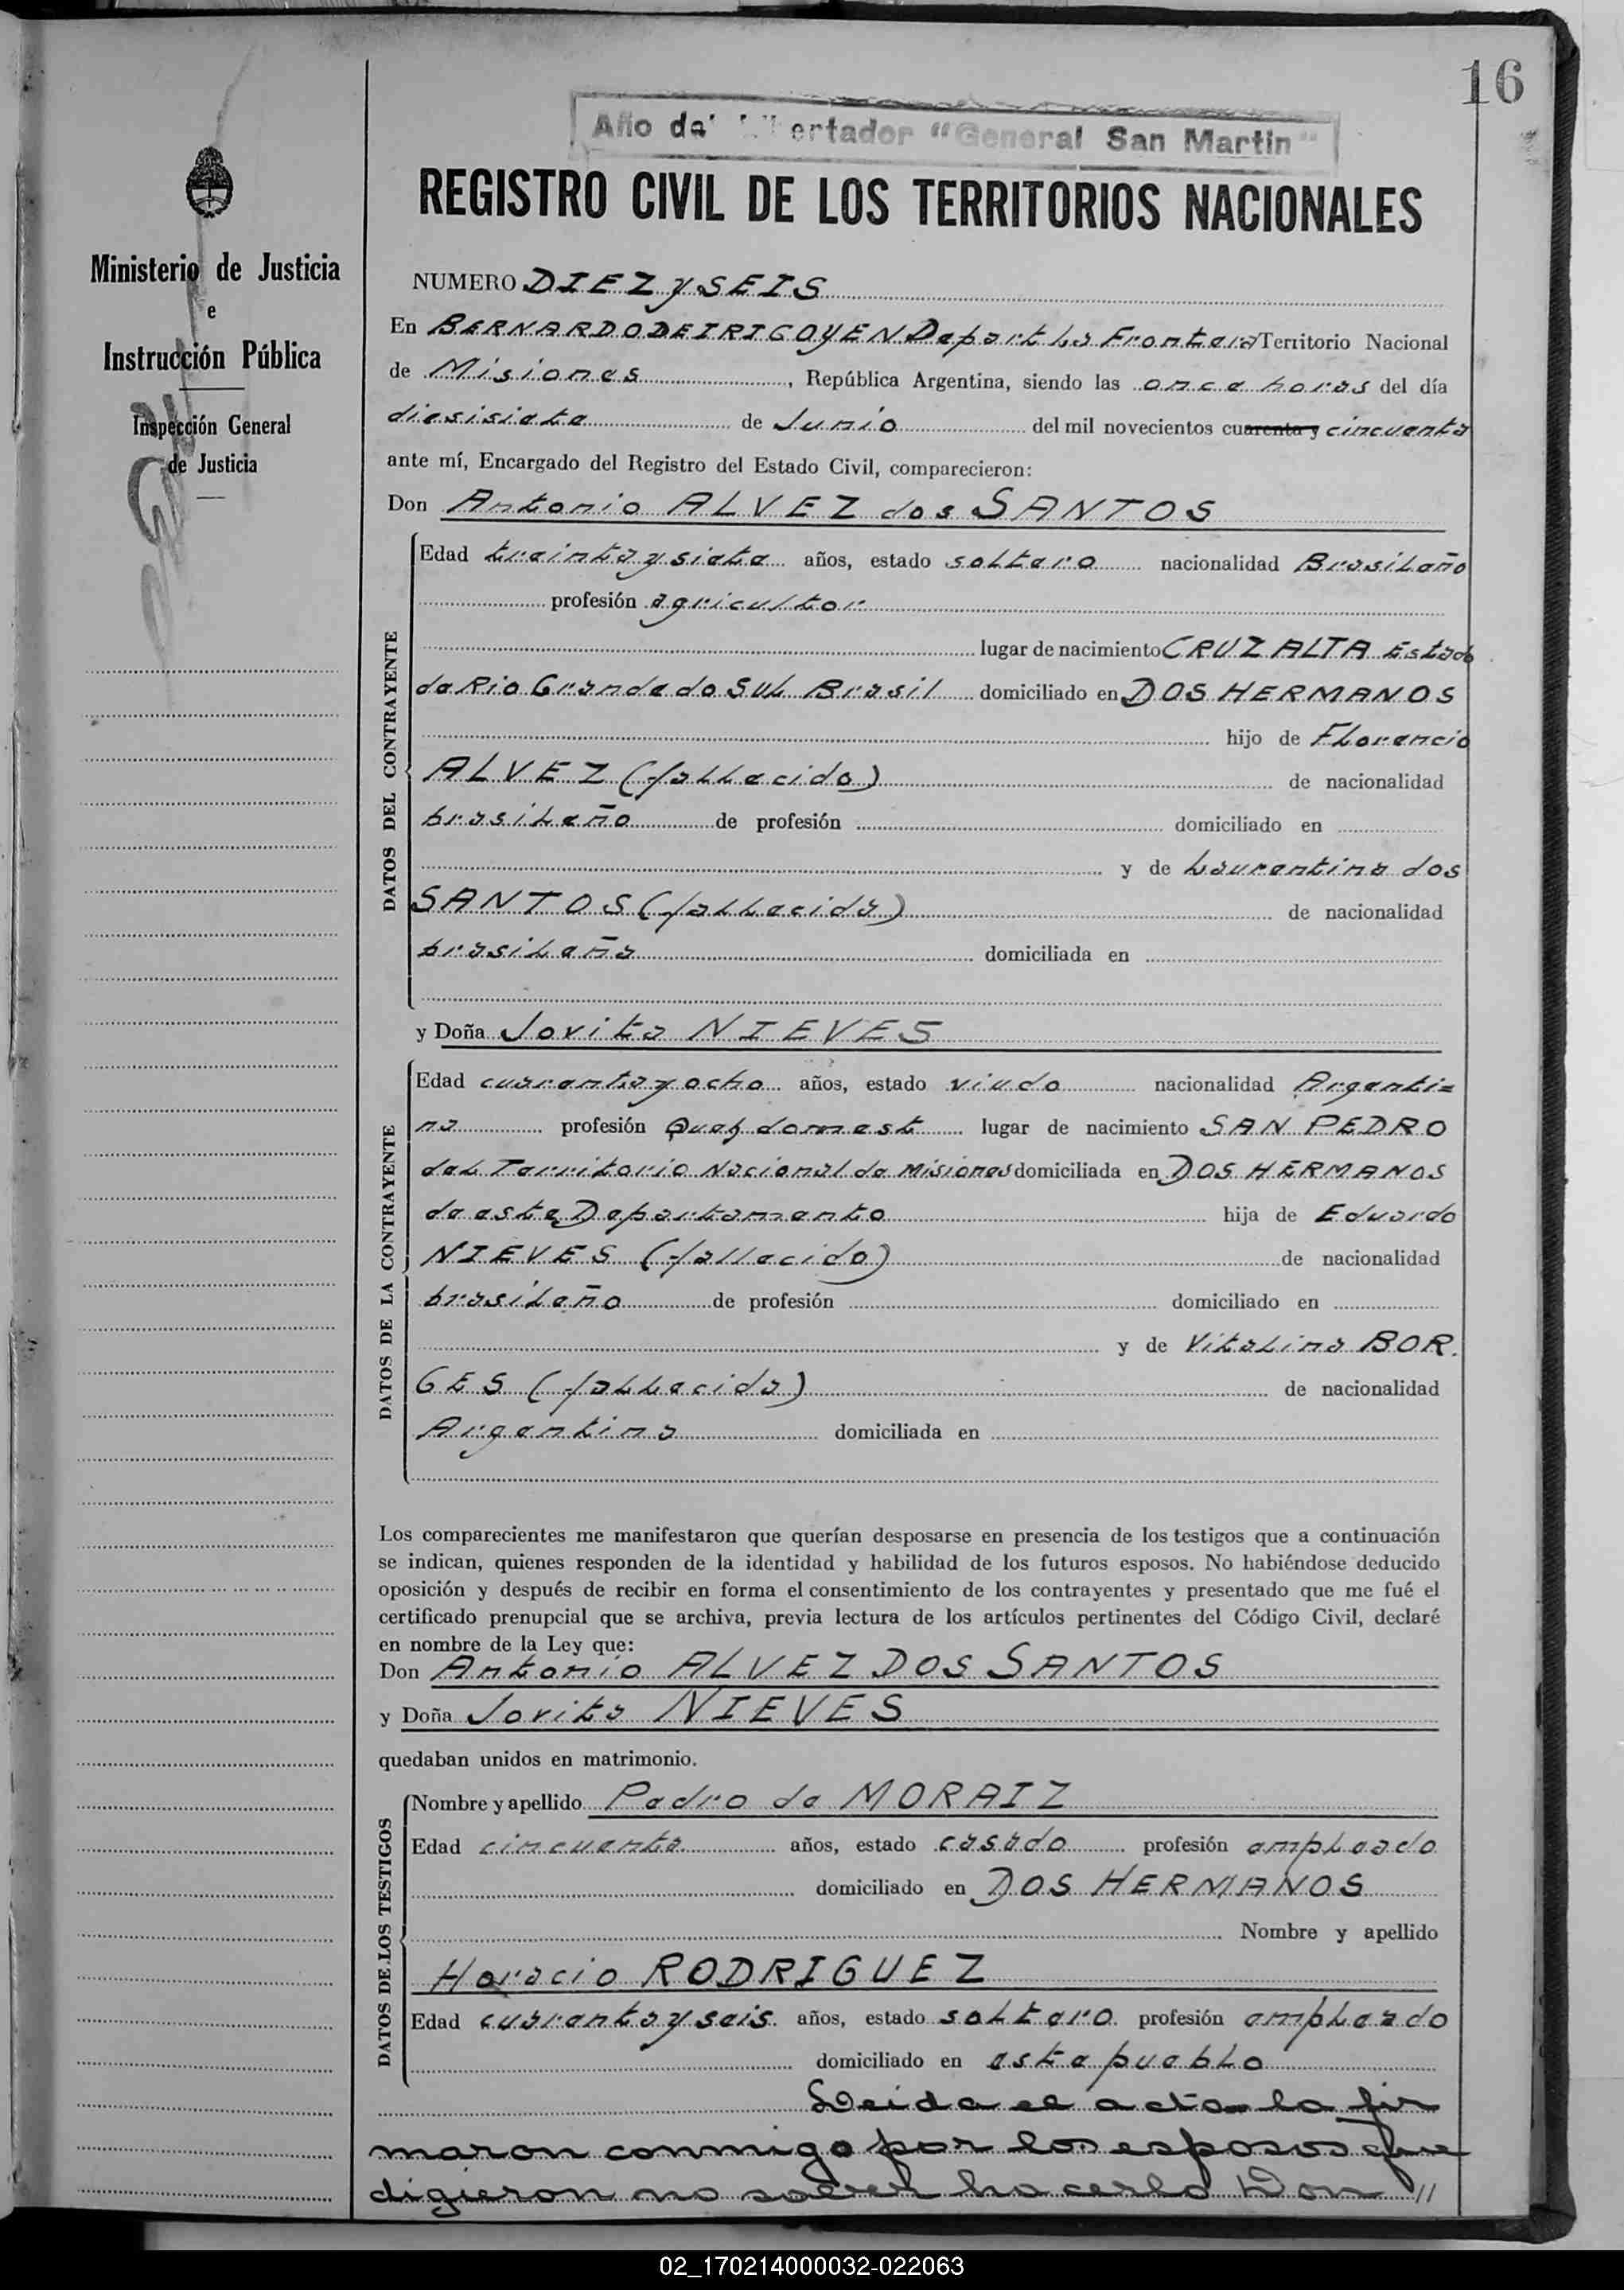 16
Año del Libertador "General San Martin"
REGISTRO CIVIL DE LOS TERRITORIOS NACIONALES
Ministerio de Justicia
e
Instrucción Pública
Inspección General
de Justicia
NUMERO DIEZ y SEIS
En BERNARDO DE IRIGOYEN Depart La Frontera Territorio Nacional
de Misiones, República Argentina, siendo las once horas del día
diesisiete de Junio del mil novecientos cuarenta y cincuenta
ante mí, Encargado del Registro del Estado Civil, comparecieron:
Don Antonio ALVEZ dos SANTOS
DATOS DEL CONTRAYENTE
Edad treinta y siete años, estado soltero nacionalidad Brasileño
profesión agricultor
lugar de nacimiento CRUZ ALTA Estado
de Rio Grande do Sul Brasil domiciliado en DOS HERMANOS
hijo de Florencio
ALVEZ (fallecido) de nacionalidad
brasileño de profesión domiciliado en
y de Laurentina dos
SANTOS (fallecida) de nacionalidad
brasileña domiciliada en
y Doña Jovita NIEVES
DATOS DE LA CONTRAYENTE
Edad cuarenta y ocho años, estado viudo nacionalidad Argenti=
na profesión Queh domest lugar de nacimiento SAN PEDRO
del Territorio Nacional de Misiones domiciliada en DOS HERMANOS
de este Departamento hija de Eduardo
NIEVES (fallecido) de nacionalidad
brasileño de profesión domiciliado en
y de Vitalina BOR.
GES (fallecida) de nacionalidad
Argentina domiciliada en
Los comparecientes me manifestaron que querían desposarse en presencia de los testigos que a continuación
se indican, quienes responden de la identidad y habilidad de los futuros esposos. No habiéndose deducido
oposición y después de recibir en forma el consentimiento de los contrayentes y presentado que me fué el
certificado prenupcial que se archiva, previa lectura de los artículos pertinentes del Código Civil, declaré
en nombre de la Ley que:
Don Antonio ALVEZ DOS SANTOS
y Doña Jovita NIEVES
quedaban unidos en matrimonio.
DATOS DE LOS TESTIGOS
Nombre y apellido Pedro de MORAIZ
Edad cincuenta años, estado casado profesión empleado
domiciliado en DOS HERMANOS
Nombre y apellido
Horacio RODRIGUEZ
Edad cuarenta y seis años, estado soltero profesión empleado
domiciliado en este pueblo
Leida el acta la fir
maron conmigo por los esposos que
digieron no saber hacerlo Don //
02_170214000032-022063